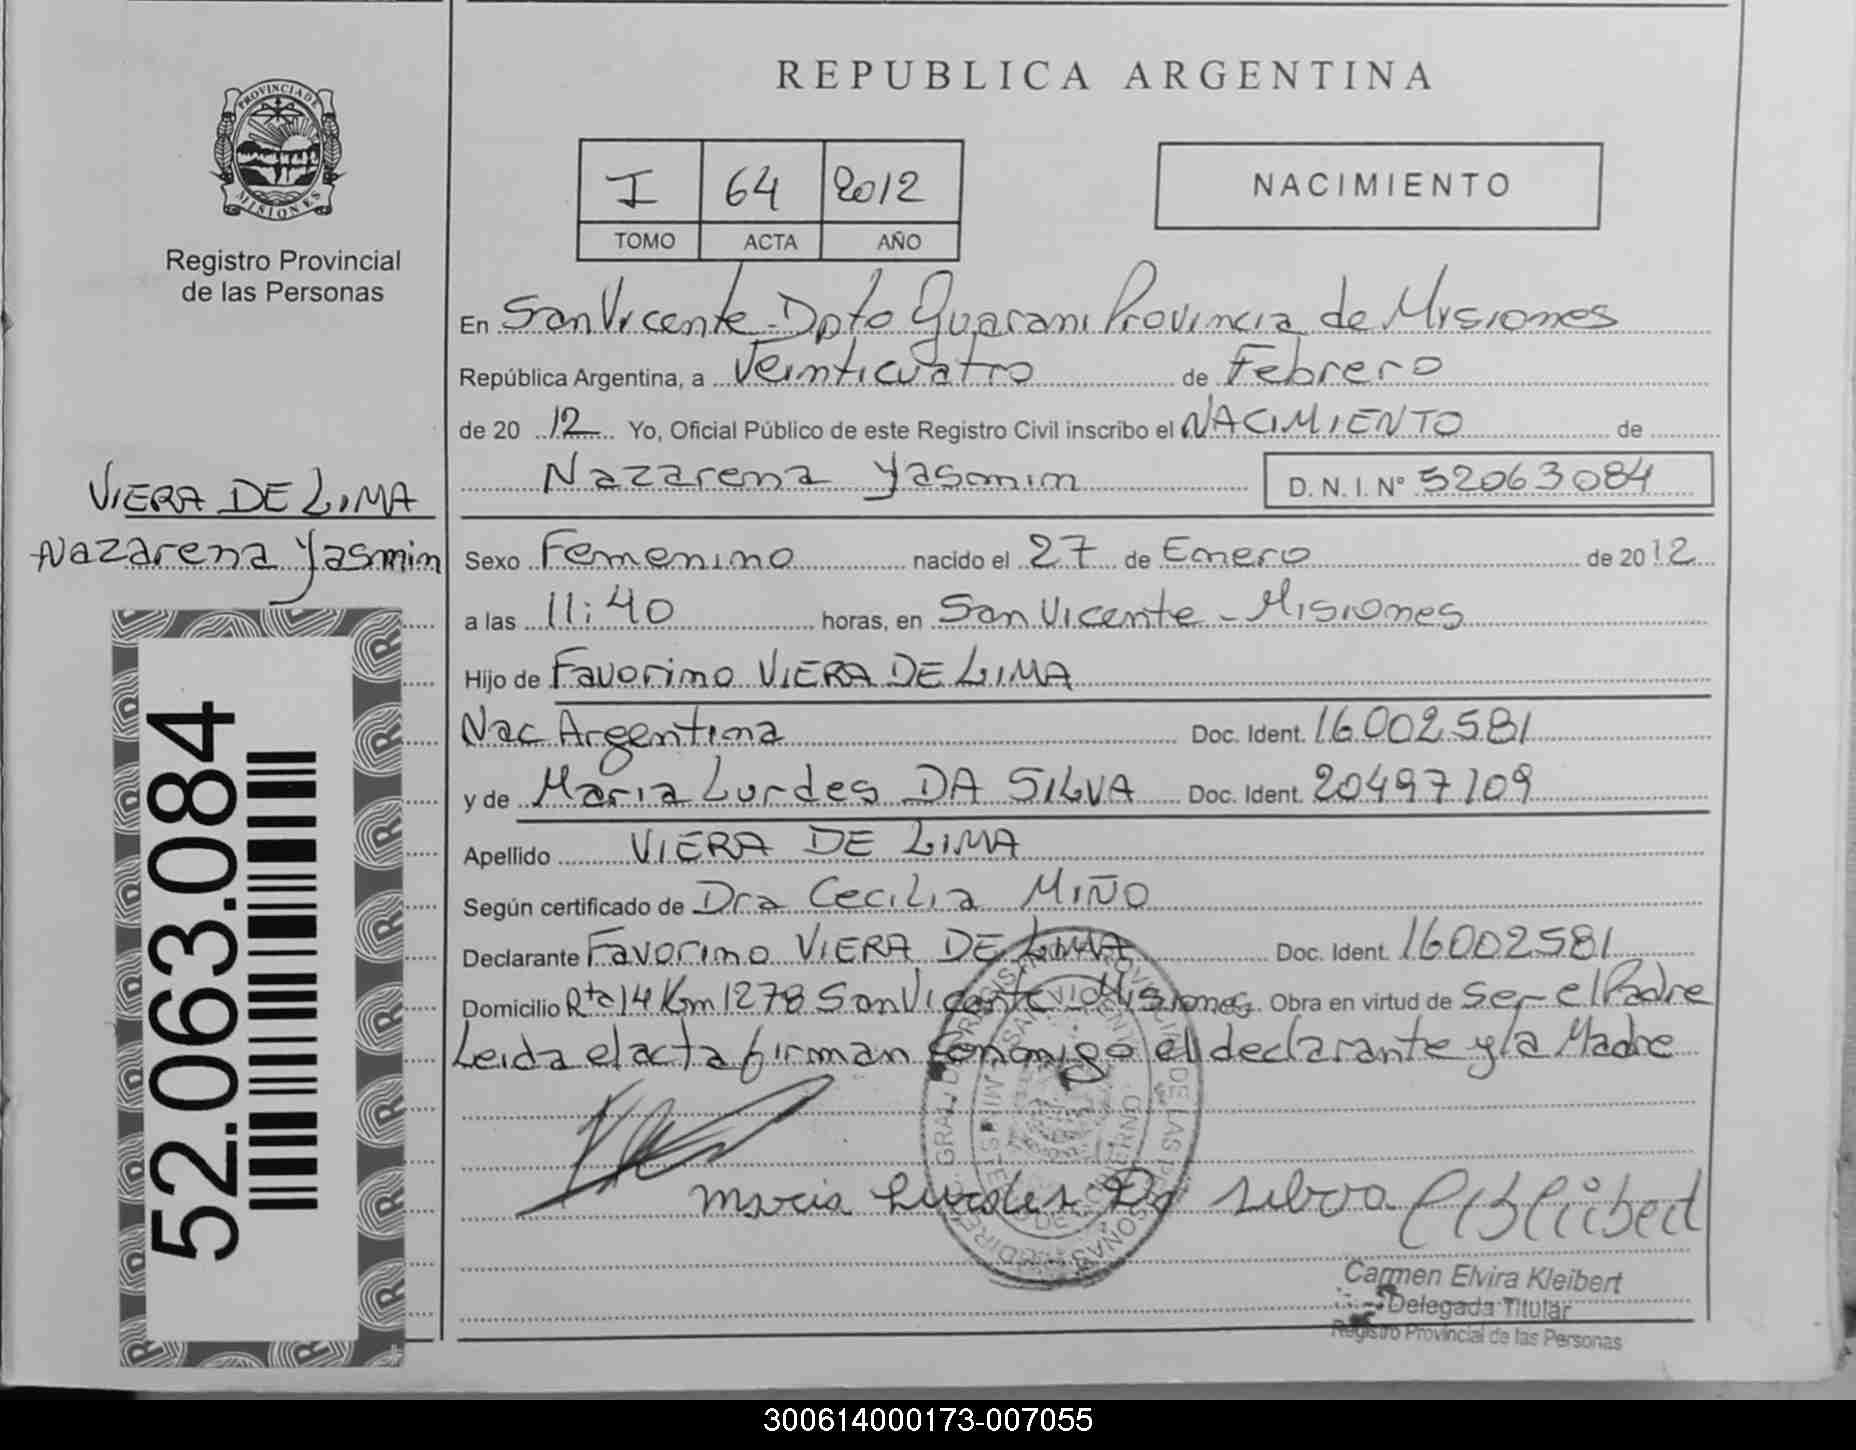 REPUBLICA ARGENTINA
PROVINCIA DE
MISIONES
Registro Provincial
de las Personas
I 64 2012
TOMO ACTA AÑO
NACIMIENTO
En San Vicente - Dpto Guarani Provincia de Misiones
República Argentina, a Veinticuatro de Febrero
de 20 12 Yo, Oficial Público de este Registro Civil inscribo el NACIMIENTO de
Nazarena Yasmin D.N.I. N° 52063084
VIERA DE LIMA
Nazarena Yasmin
52.063.084
Sexo Femenino nacido el 27 de Enero de 2012
a las 11:40 horas, en San Vicente - Misiones
Hijo de Favorino VIERA DE LIMA
Nac Argentina Doc. Ident. 16.002.581
y de Maria Lurdes DA SILVA Doc. Ident. 20497109
Apellido VIERA DE LIMA
Según certificado de Dra Cecilia MIÑO
Declarante Favorino VIERA DE LIMA Doc. Ident. 16002581
Domicilio Rta 14 Km 1278 San Vicente - Misiones. Obra en virtud de Ser el Padre
Leida el acta firman conmigo el declarante y la Madre
Maria Lurdes Da Silva
Carmen Elvira Kleibert
Delegada Titular
Registro Provincial de las Personas
300614000173-007055